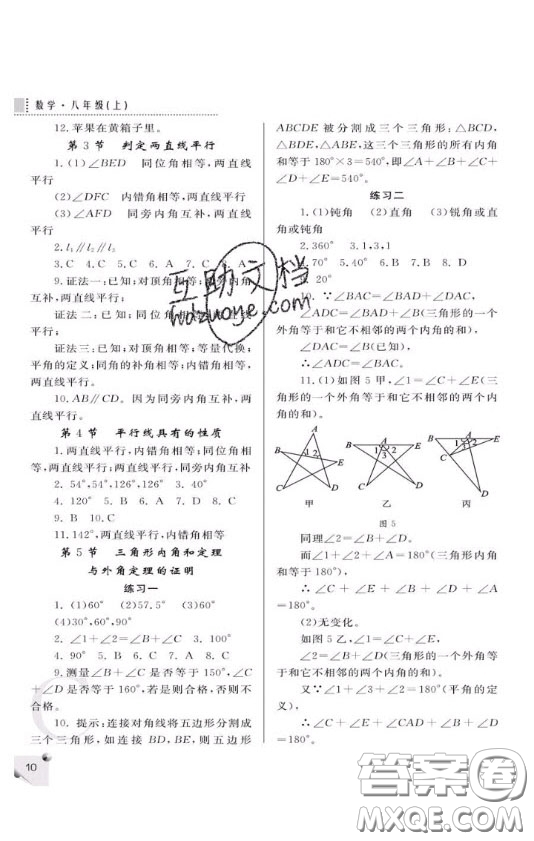 数学·八年级(上)
12.苹果在黄箱子里。
第3节 判定两直线平行
1.(1)∠BED 同位角相等,两直线
平行
(2)∠DFC 内错角相等,两直线平行
(3)∠AFD 同旁内角互补,两直线
平行
2.l₁∥l₂∥l₃
3.C 4.C 5.C 6.A 7.C 8.
9.证法一:已知;对顶角相等;同旁内角
互补,两直线平行;
证法二:已知;对顶角相等;同位角相
等,两直线平行;
证法三:已知;对顶角相等;等量代换;
平角的定义;同角的补角相等;内错角相等,
两直线平行。
10.AB∥CD。因为同旁内角互补,两
直线平行。
第4节 平行线具有的性质
1.两直线平行,内错角相等;同位角相
等,两直线平行;两直线平行,同旁内角互补
2.54°,54°,126°,126° 3.40°
4.120° 5.B 6.D 7.D 8.C
9.B 10.C
11.142°,两直线平行,内错角相等
第5节 三角形内角和定理
与外角定理的证明
练习一
1.(1)60° (2)57.5° (3)60°
(4)30°,60°,90°
2.∠1+∠2=∠B+∠C 3.110°
4.90° 5.C 6.A 7.C 8.C
9.测量∠B+∠C是否等于150°,∠C
+∠D是否等于160°,若是则合格,否则不
合格。
10.提示:连接对角线将五边形分割成
三个三角形,如连接BD,BE,则五边形
10
ABCDE被分割成三个三角形:△BCD,
△BDE,△ABE,这三个三角形的所有内角
和等于180°×3=540°,即∠A+∠B+∠C+
∠D+∠E=540°。
练习二
1.(1)钝角 (2)直角 (3)锐角或直
角或钝角
2.360° 3.1,3,1
70° 5.40° 6.B 7.C 8.A
20°
∵∠BAC=∠BAD+∠DAC,
∠ADC=∠BAD+∠B(三角形的一个
外角等于和它不相邻的两个内角的和),
∠DAC=∠B(已知),
∴∠ADC=∠BAC。
11.(1)如图5甲,∠1=∠C+∠E(三
角形的一个外角等于和它不相邻的两个内
角的和)。
A
B
1 2
E
C
D
甲
A
B
1 3 2
E
C
D
乙
A
B
1
2
E
C
D
丙
图5
同理∠2=∠B+∠D。
而∠1+∠2+∠A=180°(三角形内角
和等于180°),
∴∠C+∠E+∠B+∠D+∠A
=180°。
(2)无变化。
如图5乙,∠1=∠C+∠E,∠2=∠B
+∠D(三角形的一个外角等于和它不相邻
的两个内角的和)。
又∵∠1+∠3+∠2=180°(平角的定
义),
∴∠C+∠E+∠CAD+∠B+∠D
=180°。
互助文档
hdzuoye.com
答案卷
MXQE.COM